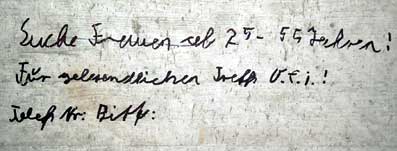 Suche Frauen ab 25-55 Jahren!
Für gelegendlichen Treff
Telef Nr. Bitt: